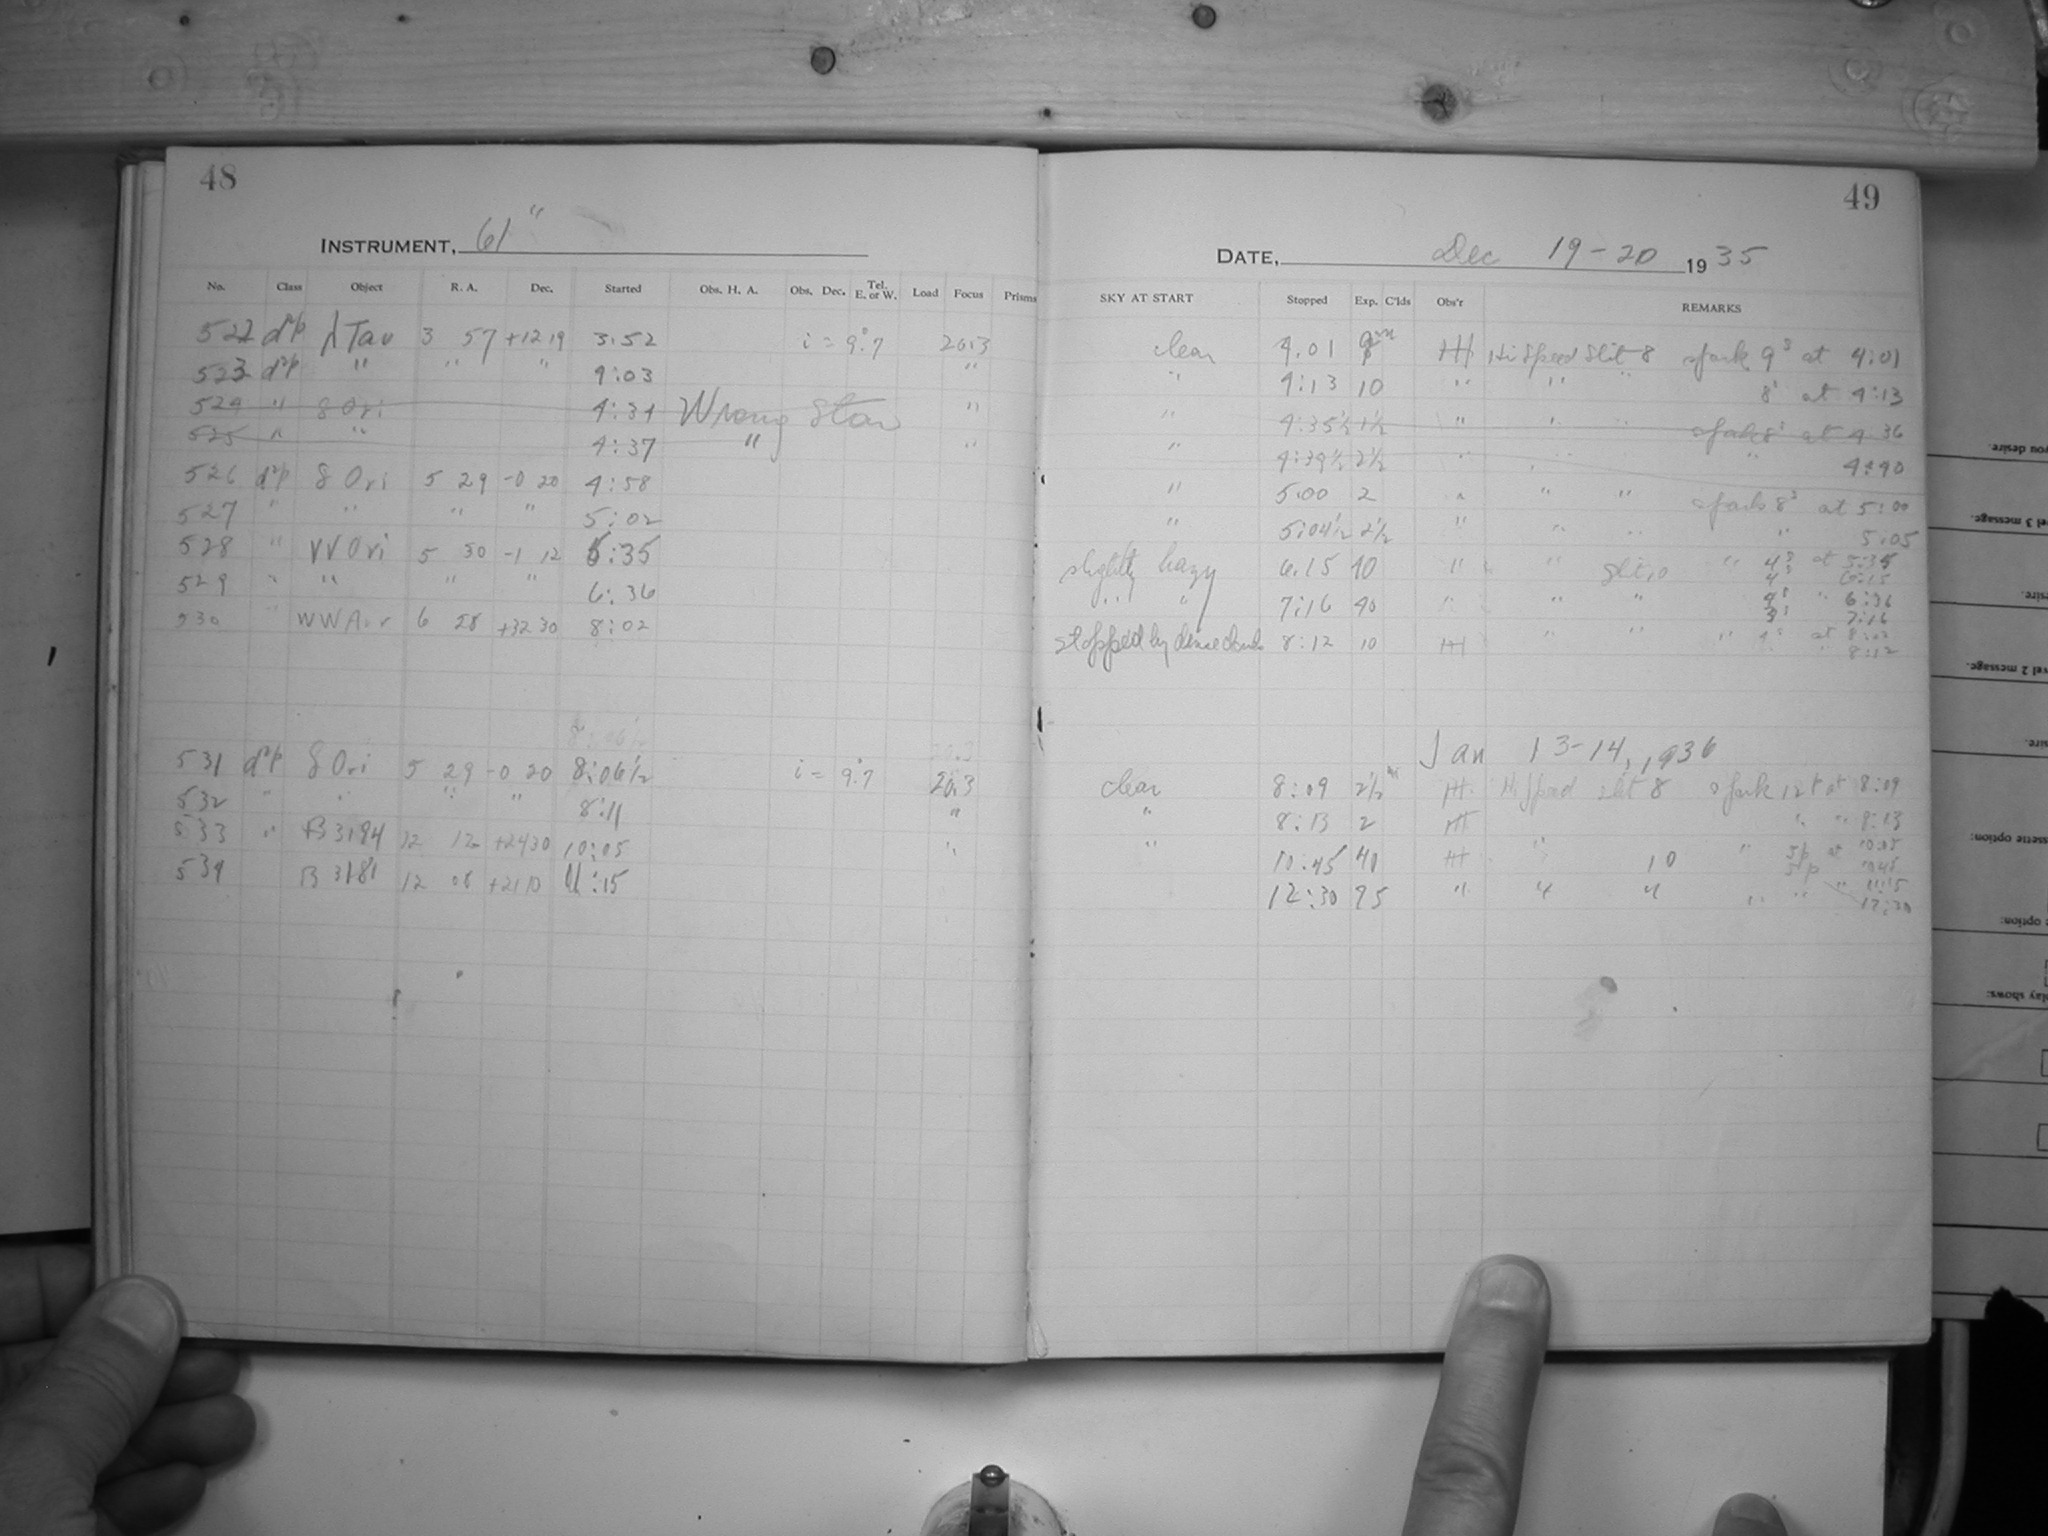 48
INSTRUMENT, 61"
No. Class Object R. A. Dec. Started Obs. H. A. Obs. Dec. Tel. E. or W. Load Focus Prisms
522 d²p λ Tau 3 57 +12 19 3:52 i = 9.7 20.3
523 d²p " " " 4:03 "
524 " δ Ori 4:34 Wrong Star "
525 " " 4:37 " "
526 d²p δ Ori 5 29 -0 20 4:58
527 " " " " 5:02
528 " VV Ori 5 30 -1 12 5:35
529 " " " " 6:36
530 " WW Aur 6 28 +32 30 8:02
531 d²p δ Ori 5 29 -0 20 8:06½ i = 9.7 20.3
532 " " " " 8:11 "
533 " B 3194 12 12 +24 30 10:05 "
534 B 3181 12 08 +21 10 11:15
49
DATE, Dec 19-20 1935
SKY AT START Stopped Exp. C'lds Obs'r REMARKS
clear 4.01 9m HH Hi Speed Slit 8 spark 9s at 4:01
" 4:13 10 " " " 8s at 4:13
" 4:35½ 1½ " " " spark 8s at 4 36
" 4:39½ 2½ " " " " 4:40
" 5:00 2 " " " spark 8s at 5:00
" 5:04½ 2½ " " " " 5:05
slightly hazy 6.15 40 " " slit 10 " 4s at 5:35
4s 6:15
" " 7:16 40 " " " 4s " 6:36
3s 7:16
stopped by dense clouds 8:12 10 HH " " " 4s at 8:02
" " 8:12
Jan 13-14, 1936
clear 8:09 2½m HH Hi speed slit 8 spark 12 at 8:09
" 8:13 2 HH " " 8:13
" 10:45 40 HH " 10 " 5p at 10:05
5p 10:45
12:30 75 " " " " " " 11:15
12:30